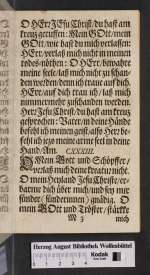 O HErr JEsu Christ/ du hast am
kreuz geruffen: Mein GOtt/ mein
GOtt/ wie hast du mich verlassen:
HErr/ verlaß mich nicht in meinen
todes-nöhten: O HErr/ bewahre
meine seele/ laß mich nicht zu schan-
den werden/ denn ich traue auf dich
HErr/ auf dich trau ich/ laß mich
nimmermehr zuschanden werden.
Herr Jesu Christ/ du hast am kreuz
gesprochen: Vater/ in deine Hände
befehl ich meinen geist/ also Herr/ be-
fehl ich jezo meine arme seel in deine
Hand. Am
O Mein Gott und Schöpffer/
verlaß mich deine kreatur nicht.
O mein Heyland Jesu Christe/ er-
barme dich über mich/ und sey mir
sünder/ gnädig. O
mein GOtt und Tröster/ stärcke
M 3 mich
Herzog August Bibliothek Wolfenbüttel
Kodak